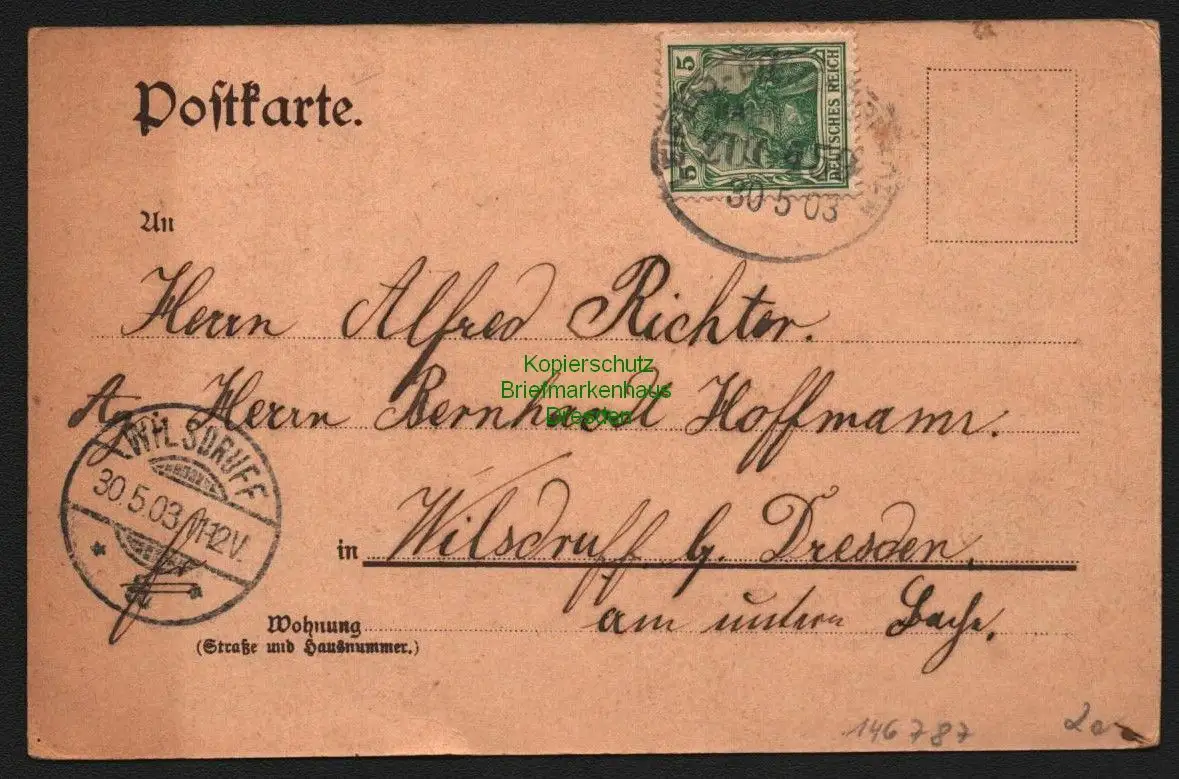 Postkarte.
5 5 DEUTSCHES REICH
ZUG
30 5 03
An
Herrn Alfred Richter.
Kopierschutz
Briefmarkenhaus
Dresden
Herrn Bernhardt Hoffmann.
WILSDRUFF
30.5.03 11-12V.
in Wilsdruff b. Dresden.
am untern Bache.
Wohnung
(Straße und Hausnummer.)
146787